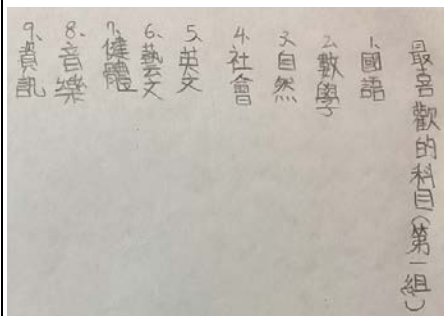 最喜歡的科目(第一組)
1.國語
2.數學
3.自然
4.社會
5.英文
6.藝文
7.健體
8.音樂
9.資訊